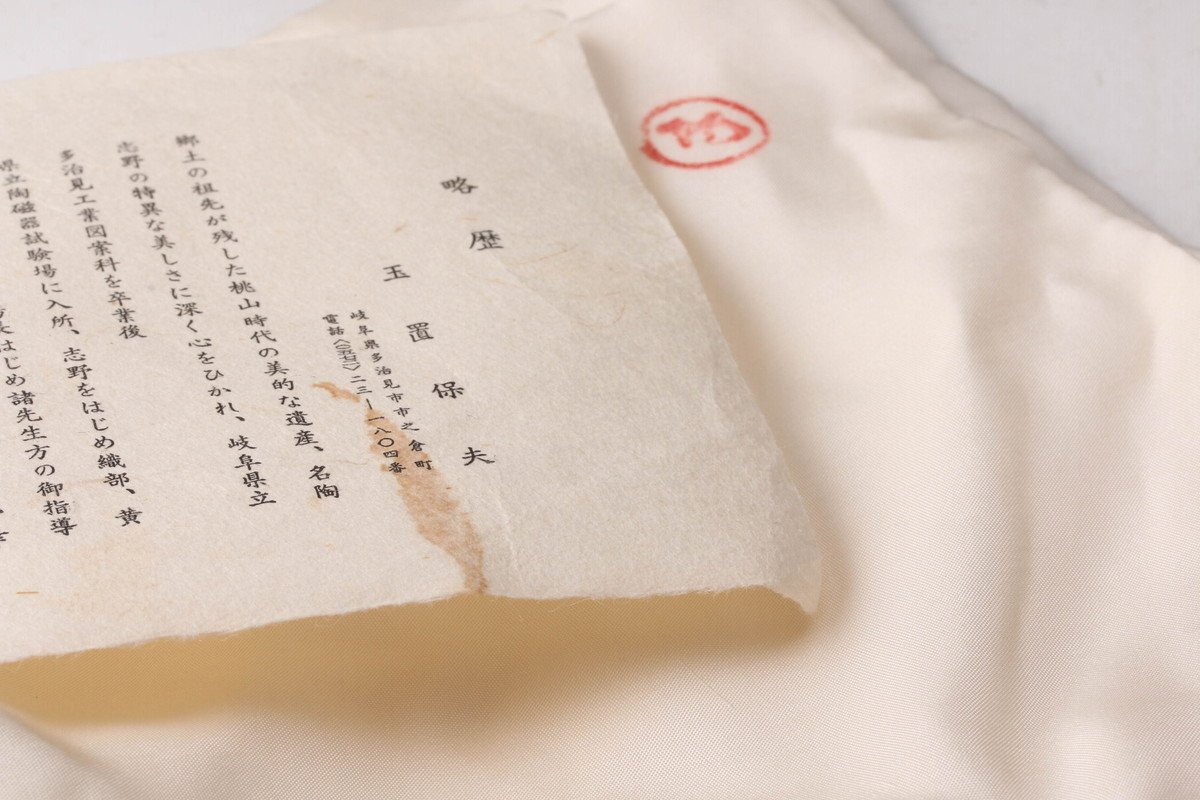 略歴
玉置保夫
岐阜県多治見市市之倉町
電話〈〇五七二〉二三―一八〇四番
郷土の祖先が残した桃山時代の美的な遺産、名陶
志野の特異な美しさに深く心をひかれ、岐阜県立
多治見工業図案科を卒業後
県立陶磁器試験場に入所、志野をはじめ織部、黄
はじめ諸先生方の御指導